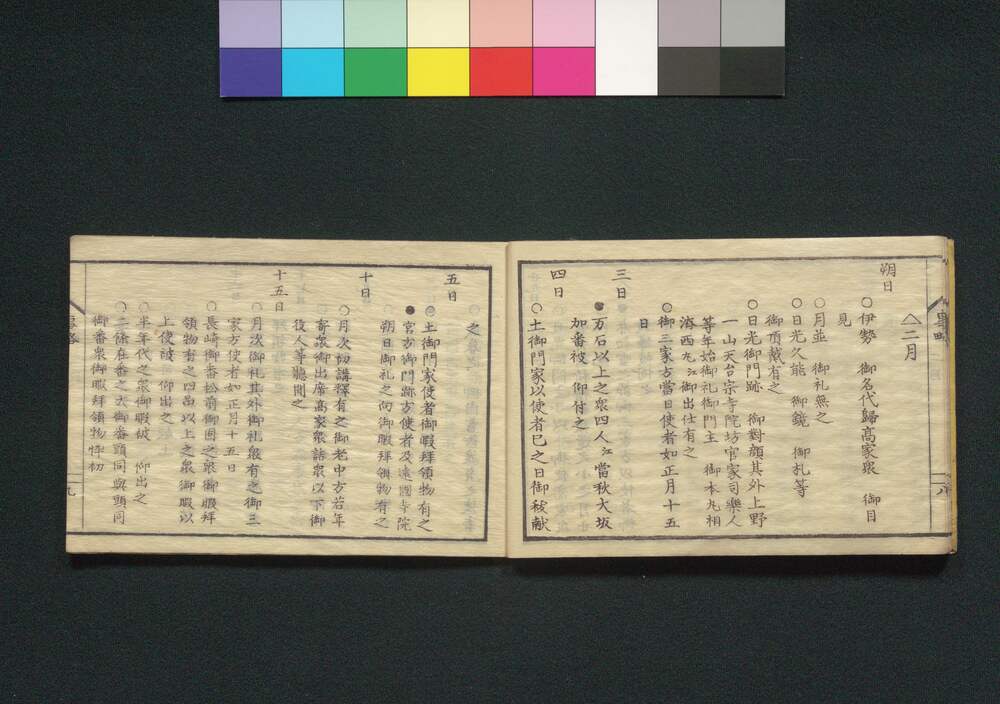 二月
朔日
○伊勢 御名代歸高家衆 御目
見
○月並 御礼無之
○日光久能 御鏡 御札等
御頂戴有之
○日光御門跡 御對顔其外上野
一山天台宗寺院坊官家司樂人
等年始御礼御門主 御本丸相
済西丸江御出仕有之
○御三家方當日使者如正月十五
日
三日
●万石以上之衆四人江當秋大坂
加番被 仰付之
四日
○土御門家以使者巳之日御秡献
八
之
五日
○土御門家使者御暇拜領物有之
●宮方御門跡方使者及遠國寺院
朔日御礼之向御暇拜領物有之
十日
○月次御講釋有之御老中方若年
寄衆御出席高家衆諸衆以下御
役人等聽聞之
十五日
○月次御礼其外御礼衆有之御三
家方使者如正月十五日
○長崎御番松前御固之衆御暇拜
領物有之四品以上之衆御暇以
上使被 仰出之
○半年代之衆御暇被 仰出之
○二條在番之大御番頭同與頭同
御番衆御暇拜領物時
九